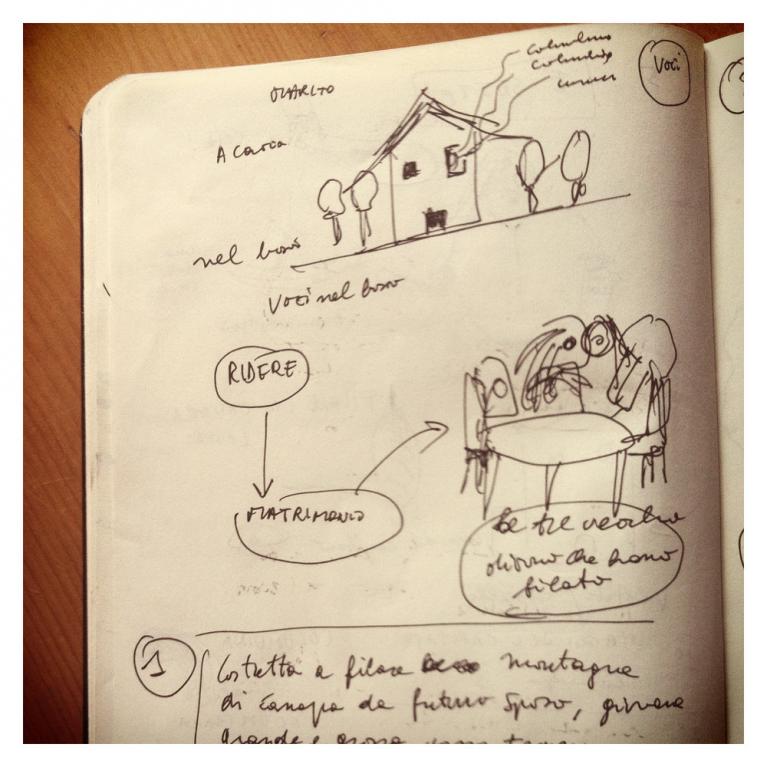 Voci
A caccia
nel bosco
Voci nel bosco
RIDERE
MATRIMONIO
le tre vecchie
dicono che hanno
filato
1
Costretta a filare montagne
di canapa da futuro sposo, giovane
grande e grossa